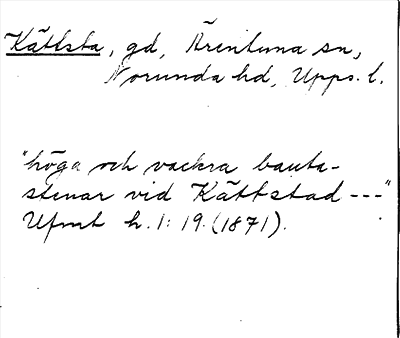 Kättsta, gd, Ärentuna sn,
Norunda hd, Upps. l.
"höga och vackra bauta-
stenar vid Kättstad ---"
Ufmt h. 1: 19. (1871).